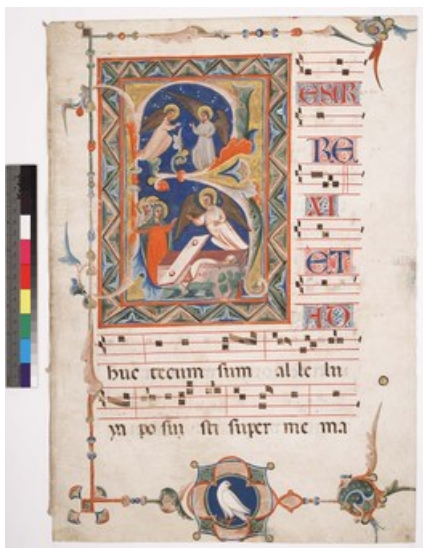 R
ESUR
RE
XI
ET
AD
huc tecum sum al le lu
ya po sui sti super me ma